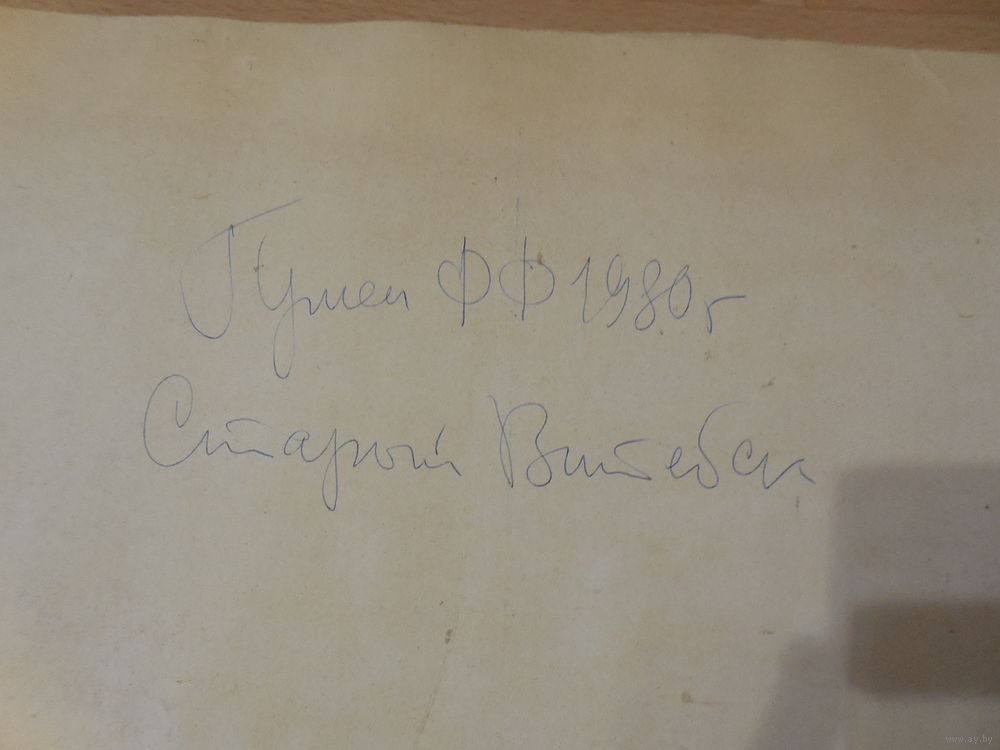 Гумен ФФ 1980г
Старый Витебск
www.ay.by